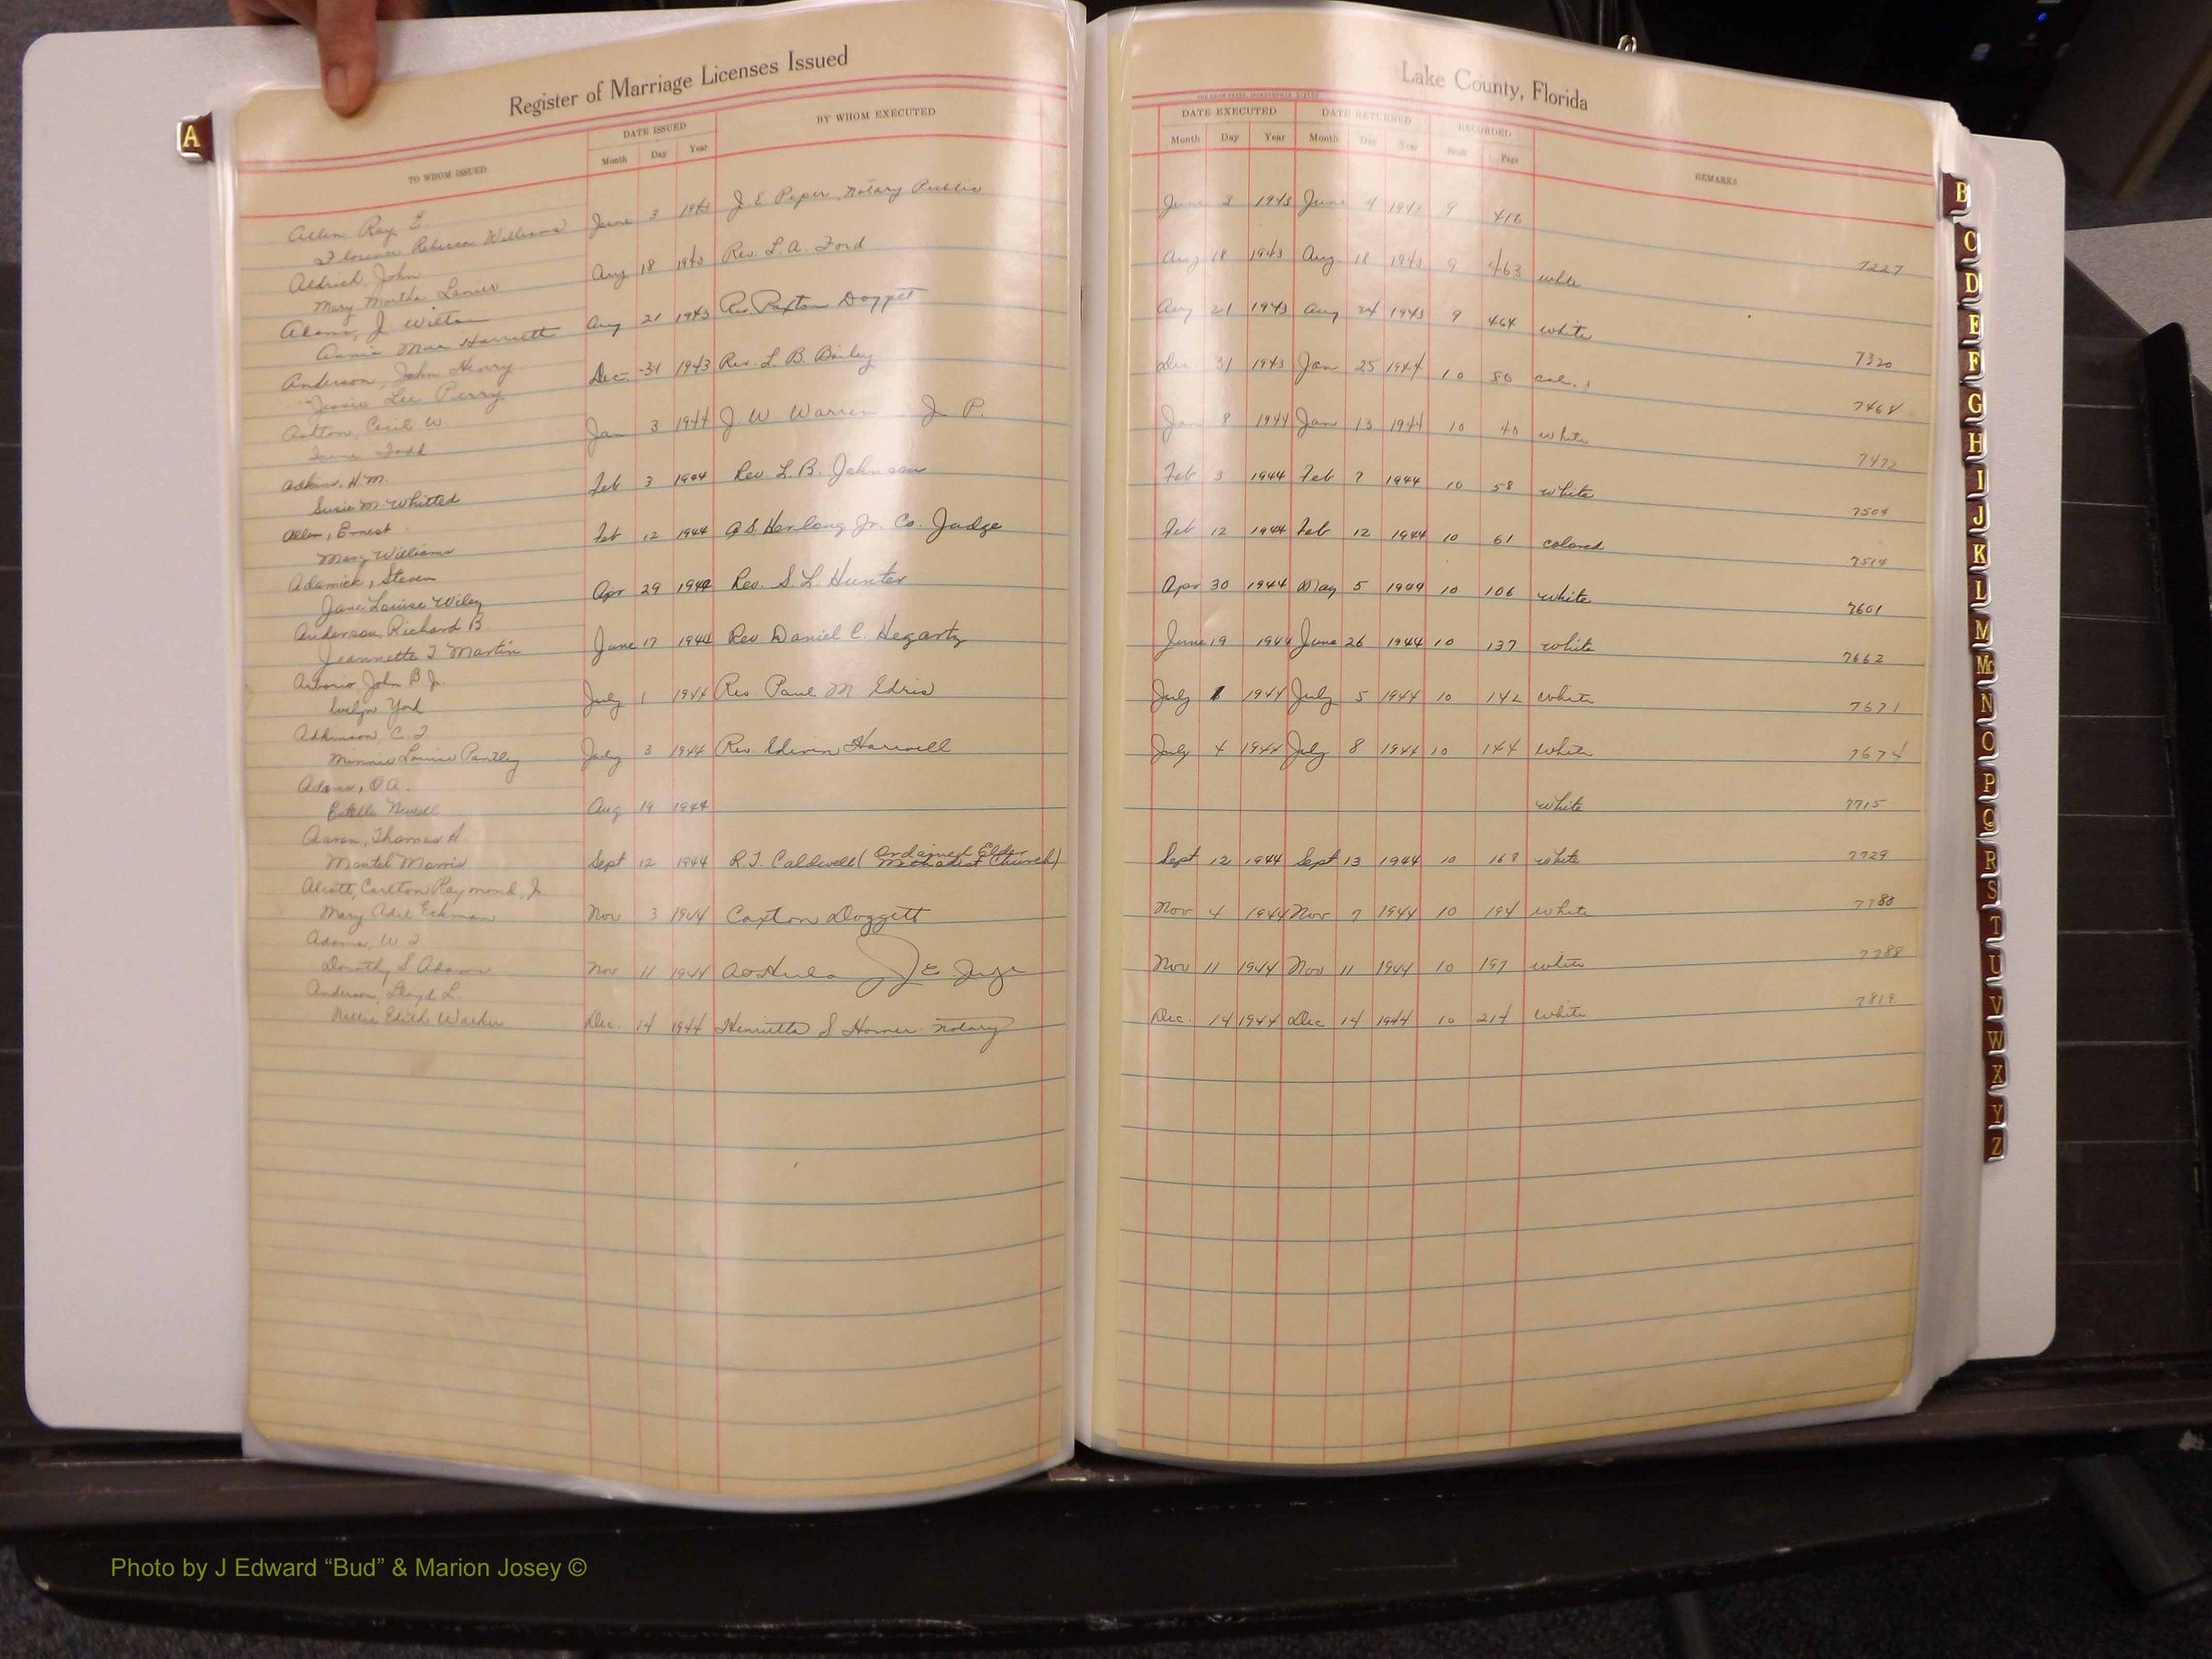 Register of Marriage Licenses Issued
Lake County, Florida
TO WHOM ISSUED
DATE ISSUED
Month Day Year
BY WHOM EXECUTED
DATE EXECUTED
Month Day Year
DATE RETURNED
Month Day Year
RECORDED
Book Page
REMARKS
Allen, Ray E. June 3 1943 J. E. Peper, Notary Public June 3 1943 June 4 1943 9 416
Florence Rebecca Williams
7227
Aldrich, John Aug 18 1943 Rev. L. A. Ford Aug 18 1943 Aug 18 1943 9 463 white
Mary Martha
Adams, J. Wilton Aug 21 1943 Rev. Paxton Doggett Aug 21 1943 Aug 24 1943 9 464 white
Annie Mae Harriett
7320
Anderson, John Henry Dec 31 1943 Rev. L. B. Dec 31 1943 Jan 25 1944 10 80 col.
Jessie Lee Perry
7468
Ashton, Cecil W. Jan 3 1944 J W Warren J P. Jan 8 1944 Jan 13 1944 10 40 white
Irene Todd
7472
Adkins, H. M. Feb 3 1944 Rev. L. B. Johnson Feb 3 1944 Feb 7 1944 10 58 white
Susie M. Whitted
7504
Allen, Ernest Feb 12 1944 Jr. Co. Judge Feb 12 1944 Feb 12 1944 10 61 colored
Mary Williams
7514
Adamick, Steven Apr 29 1944 Rev. S. L. Hunter Apr 30 1944 May 5 1944 10 106 white
Jane Louise Wiley
7601
Anderson, Richard B. June 17 1944 Rev Daniel C. Hegarty June 19 1944 June 26 1944 10 137 white
Jeannette T Martin
7662
John B Jr. July 1 1944 Rev. Paul M. Edris July 1 1944 July 5 1944 10 142 white
Evelyn York
7671
Adkinson, C. T. July 3 1944 Rev. Edwin Harwell July 4 1944 July 8 1944 10 144 white
Minnie Louise
7674
Adams, O A. Aug 19 1944 white
Estelle Newell
7715
Aaron, Thomas A. Sept 12 1944 R. T. Caldwell (Ordained Elder Methodist Church) Sept 12 1944 Sept 13 1944 10 168 white
Morris
7729
Alcott, Carlton Raymond, Jr Nov 3 1944 Caxton Doggett Nov 4 1944 Nov 7 1944 10 194 white
Mary Eckman
7780
Adams, W T Nov 11 1944 Nov 11 1944 Nov 11 1944 10 197 white
Dorothy S. Adams
7788
Anderson, Lloyd L. Dec. 14 1944 Henrietta S Horner Notary Dec. 14 1944 Dec 14 1944 10 214 white
Nellie Edith
7819
A
B
C
D
E
F
G
H
I
J
K
L
M
Mc
N
O
P
Q
R
S
T
U
V
W
X
Y
Z
Photo by J Edward “Bud” & Marion Josey ©